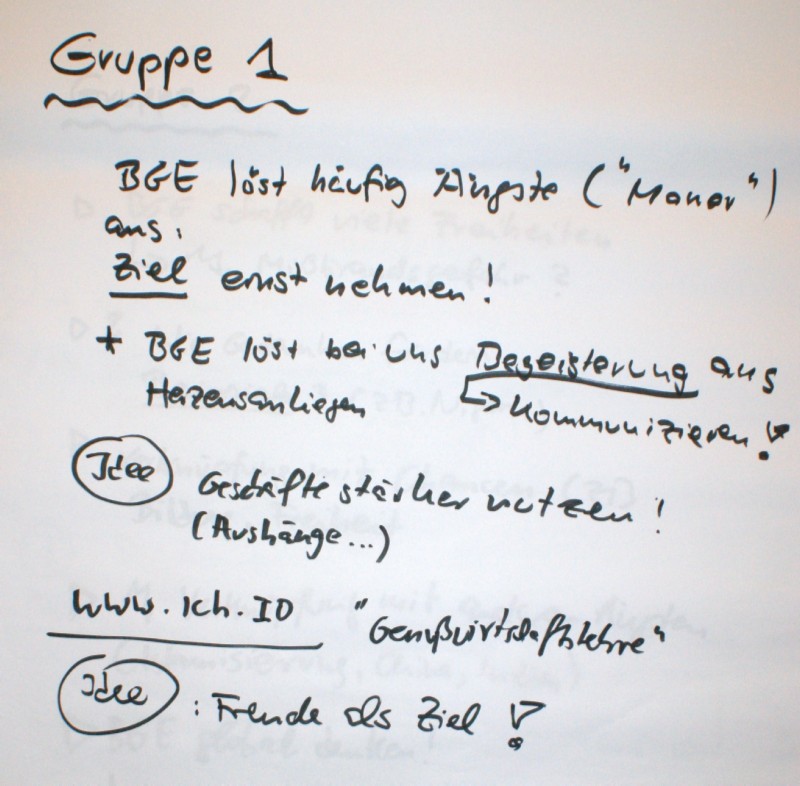 Gruppe 1
BGE löst häufig Ängste ("Manor")
aus.
Ziel ernst nehmen!
+ BGE löst bei uns Begeisterung aus
Herzensanliegen → Kommunizieren!
Idee Geschäfte stärker nutzen!
(Aushänge...)
www.ich.IO "Genußwirtschaftslehre"
Idee : Freude als Ziel!